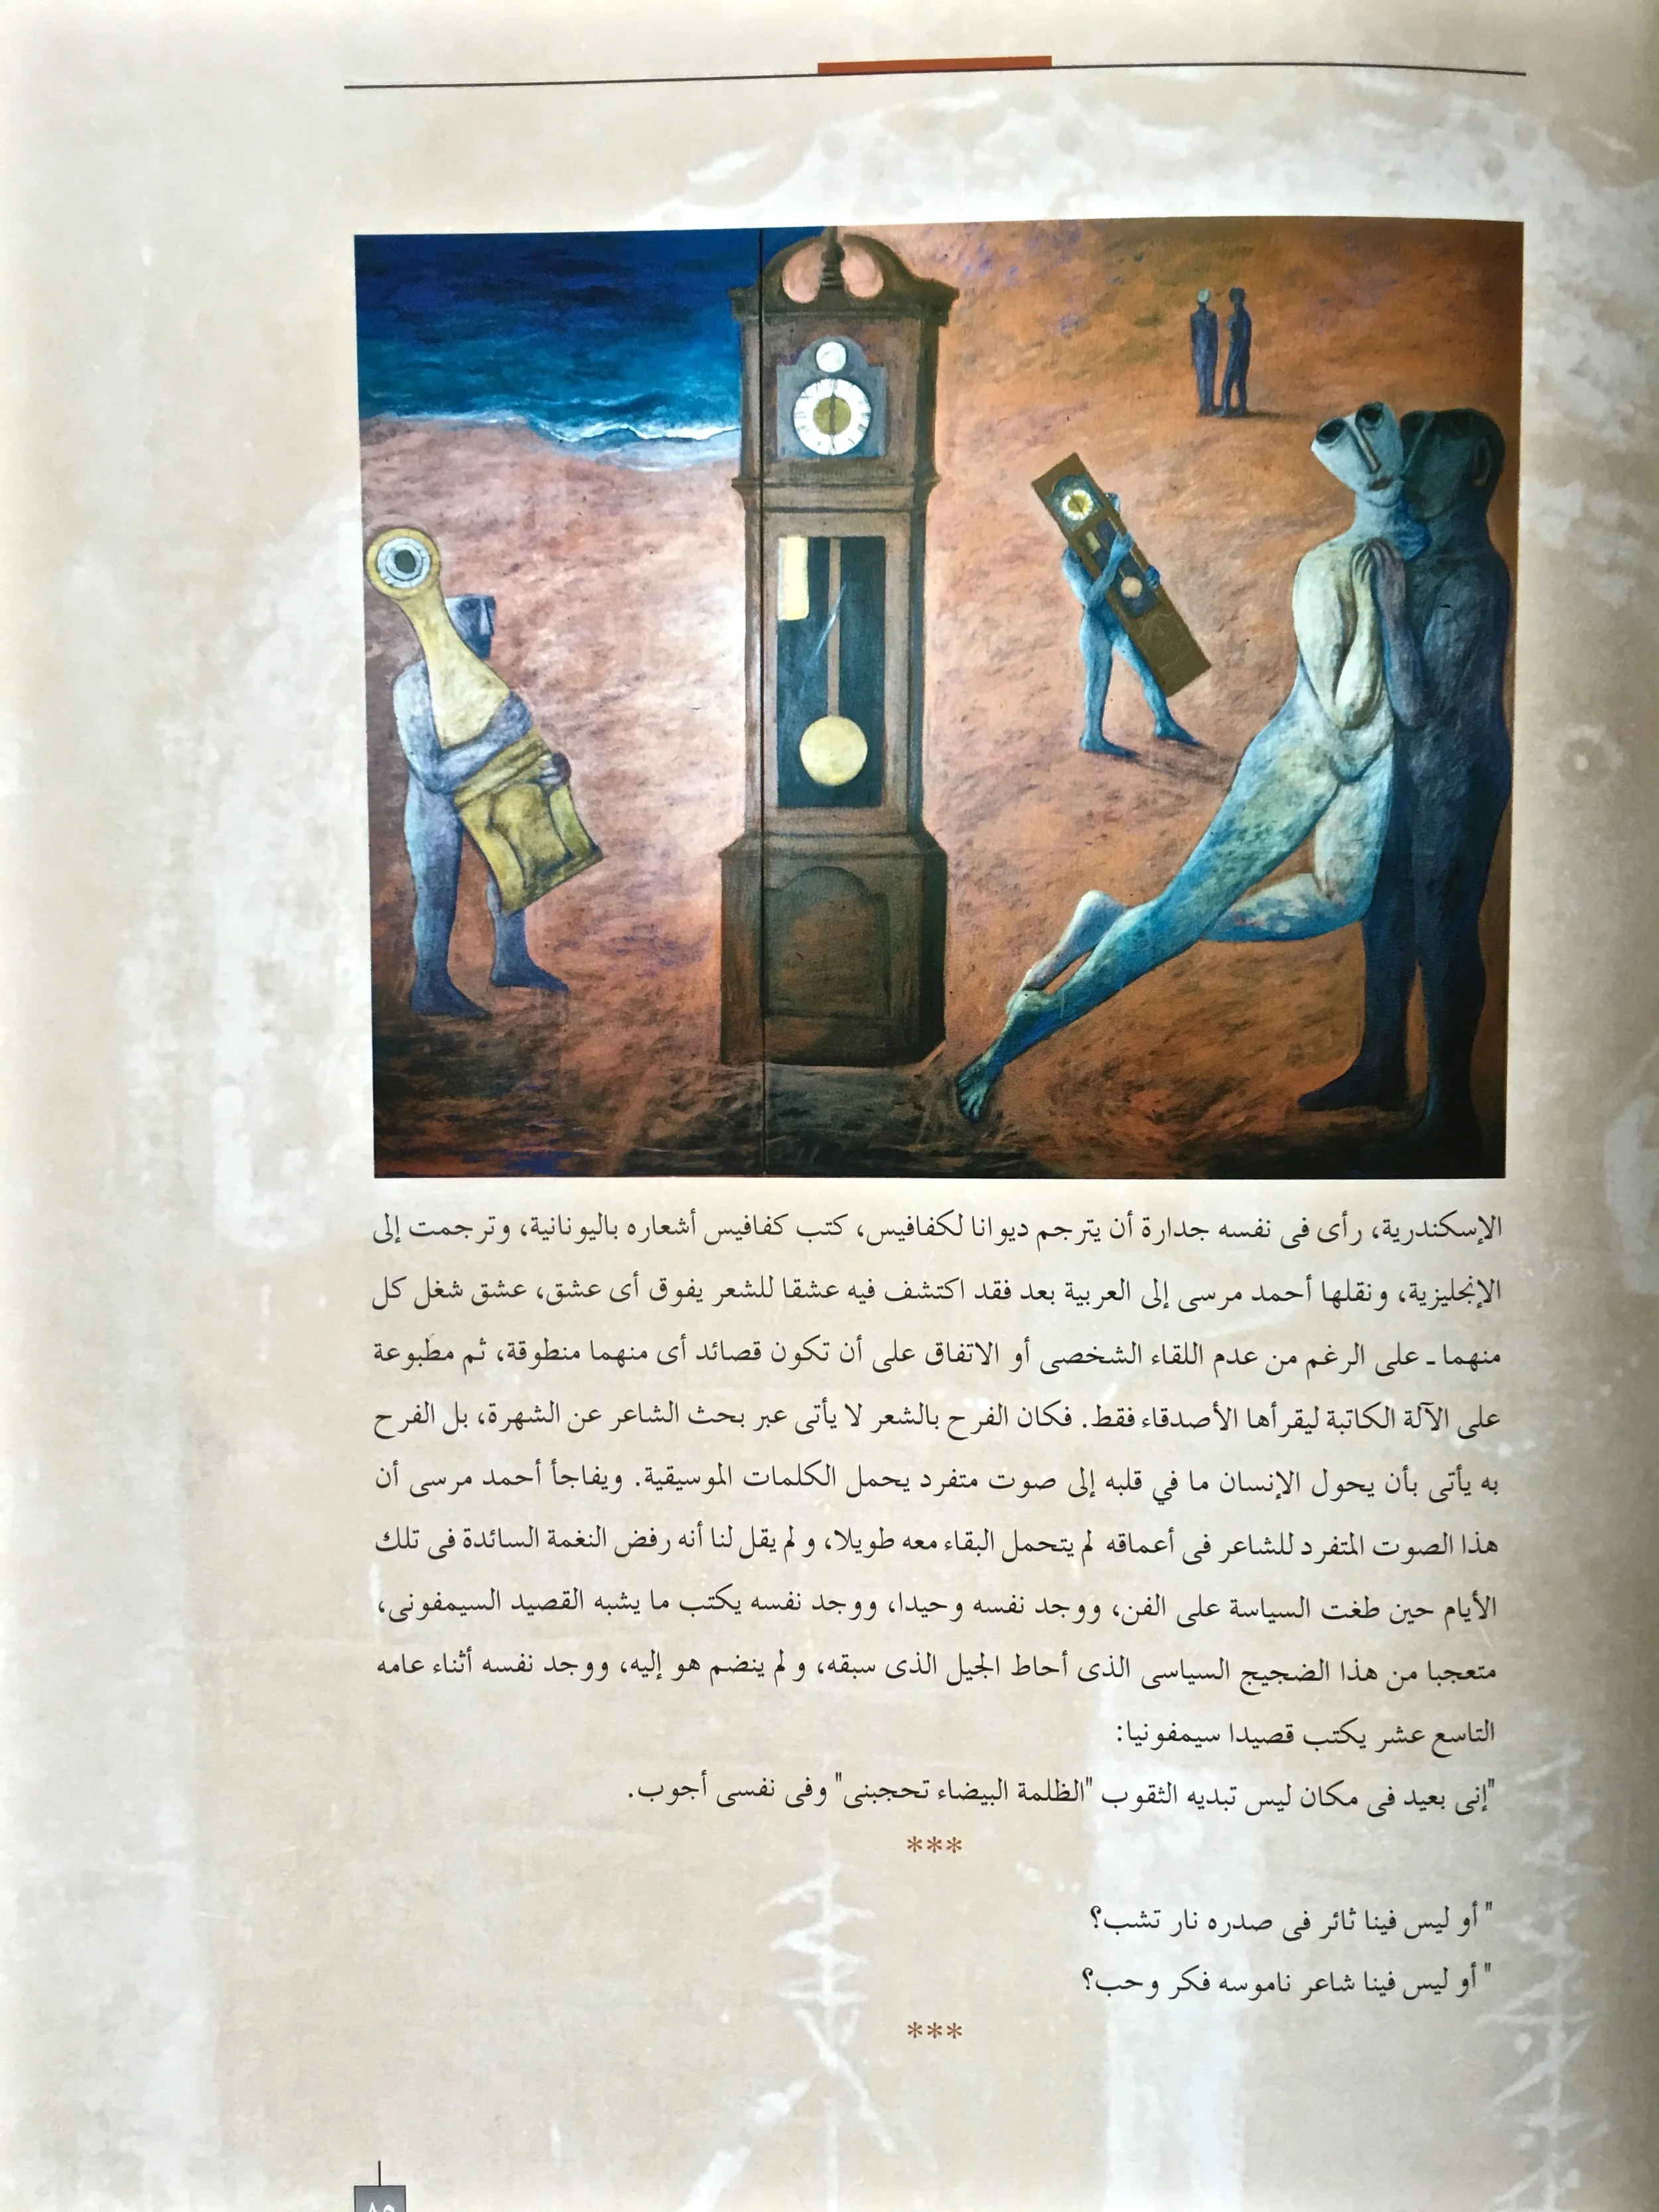 الإسكندرية، رأى فى نفسه جدارة أن يترجم ديوانا لكفافيس، كتب كفافيس أشعاره باليونانية، وترجمت إلى
الإنجليزية، ونقلها أحمد مرسى إلى العربية بعد فقد اكتشف فيه عشقا للشعر يفوق أى عشق، عشق شغل كل
منهما ـ على الرغم من عدم اللقاء الشخصى أو الاتفاق على أن تكون قصائد أى منهما منطوقة، ثم مطبوعة
على الآلة الكاتبة ليقرأها الأصدقاء فقط. فكان الفرح بالشعر لا يأتى عبر بحث الشاعر عن الشهرة، بل الفرح
به يأتى بأن يحول الإنسان ما في قلبه إلى صوت متفرد يحمل الكلمات الموسيقية. ويفاجأ أحمد مرسى أن
هذا الصوت المتفرد للشاعر فى أعماقه لم يتحمل البقاء معه طويلا، ولم يقل لنا أنه رفض النغمة السائدة فى تلك
الأيام حين طغت السياسة على الفن، ووجد نفسه وحيدا، ووجد نفسه يكتب ما يشبه القصيد السيمفونى،
متعجبا من هذا الضجيج السياسى الذى أحاط الجيل الذى سبقه، ولم ينضم هو إليه، ووجد نفسه أثناء عامه
التاسع عشر يكتب قصيدا سيمفونيا:
"إنى بعيد فى مكان ليس تبديه الثقوب "الظلمة البيضاء تحجبنى" وفى نفسى أجوب.
***
" أو ليس فينا ثائر فى صدره نار تشب؟
" أو ليس فينا شاعر ناموسه فكر وحب؟
***